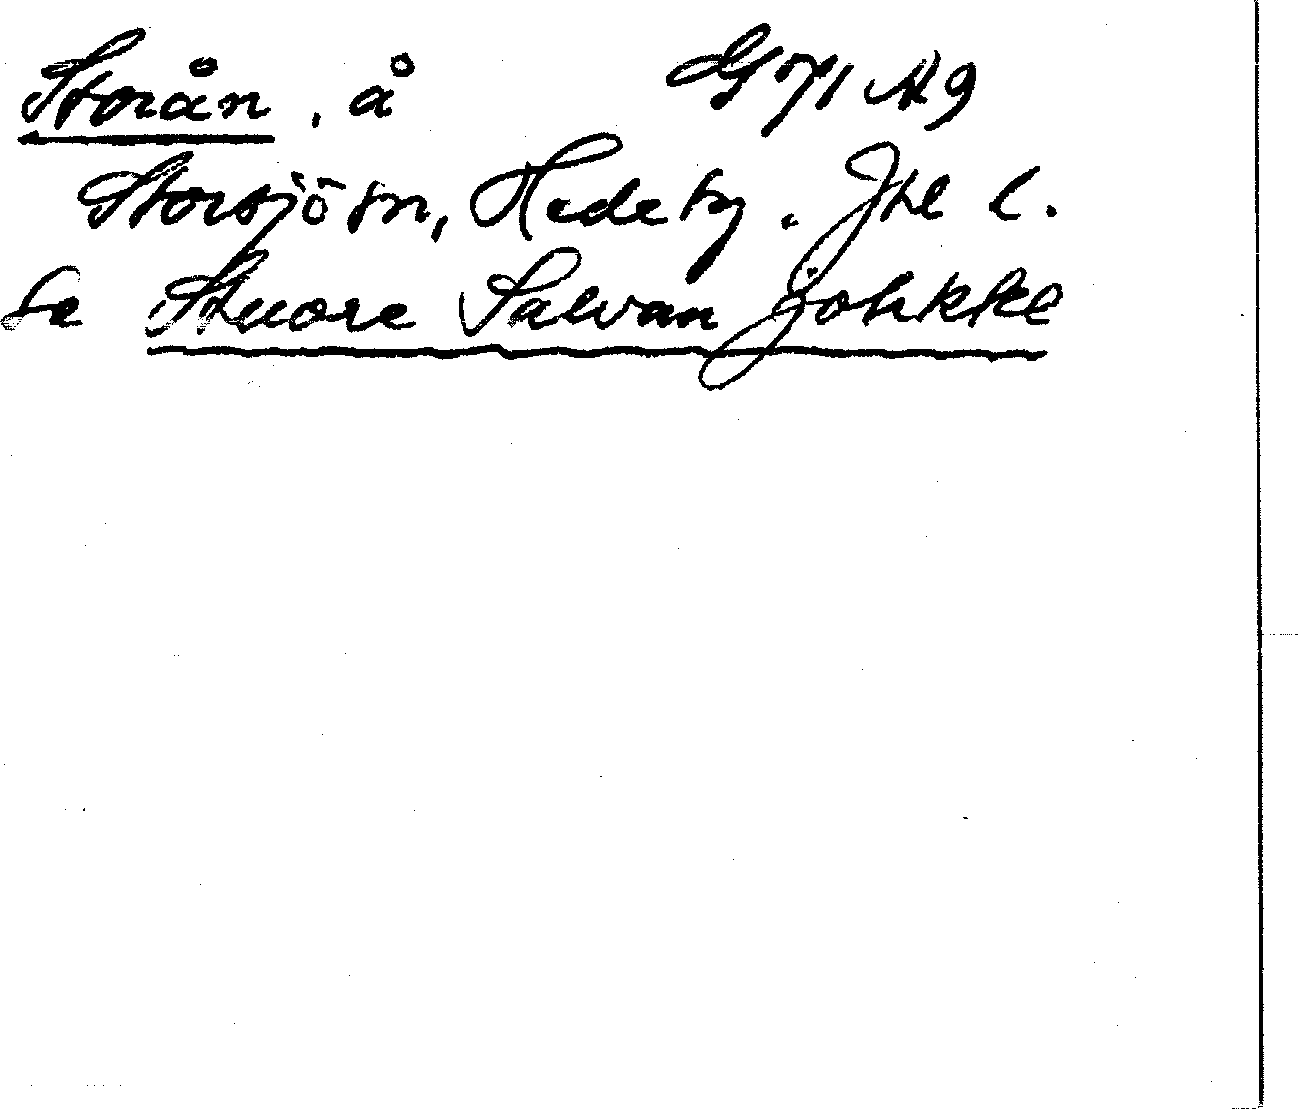 Storån, å G 71 A9
Storsjö sn, Hede tg. Jtl l.
Se Stuore Salvan johkke